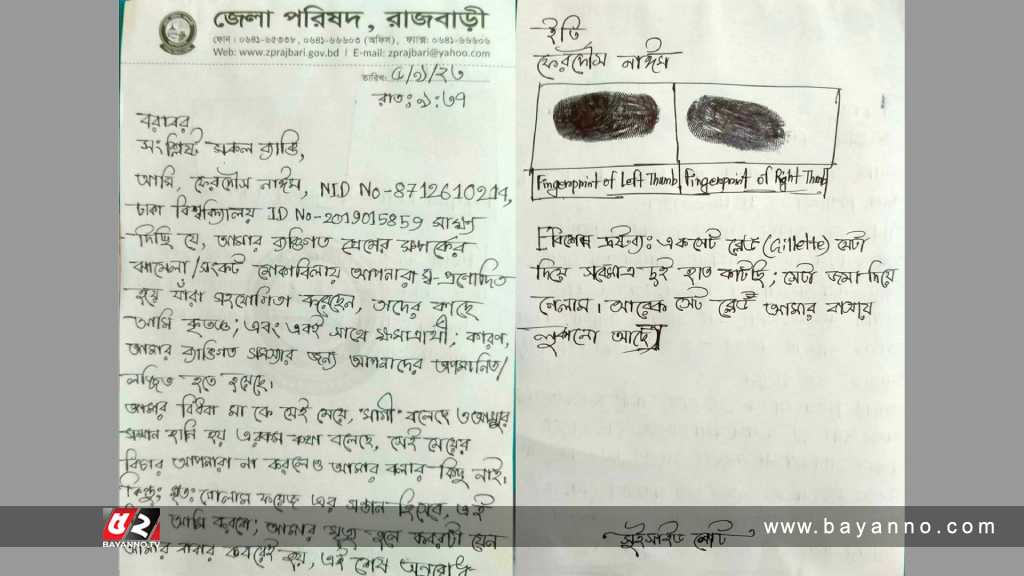 জেলা পরিষদ, রাজবাড়ী
ফোন : ০৬৪১-৬৫৩৩৮, ০৬৪১-৬৬৬০৩ (অফিস), ফ্যাক্স: ০৬৪১-৬৬৬০৬
Web: www.zprajbari.gov.bd | E-mail: zprajbari@yahoo.com
তারিখ: ৫/১/২৩
রাত: ১:৩৭
বরাবর
সংশ্লিষ্ট সকল ব্যক্তি,
আমি, ফেরদৌস নাঈম, NID No-8712610214,
ঢাকা বিশ্ববিদ্যালয় ID No-2019015859 সাক্ষ্য
দিচ্ছি যে, আমার ব্যক্তিগত প্রেমের সম্পর্কের
ঝামেলা/সংকট মোকাবিলায় আপনারা স্ব-প্রণোদিত
হয়ে যাঁরা সহযোগিতা করেছেন, তাদের কাছে
আমি কৃতজ্ঞ; এবং একই সাথে ক্ষমাপ্রার্থী; কারণ,
আমার ব্যক্তিগত সমস্যার জন্য আপনাদের অপমানিত/
লজ্জিত হতে হয়েছে।
আমার বিধবা মা কে যেই মেয়ে, "মাগী" বলেছে ও আম্মুর
সম্মান হানি হয় এরকম কথা বলেছে, সেই মেয়ের
বিচার আপনারা না করলেও আমার বলার কিছু নাই।
কিন্তু; মৃত: গোলাম ফয়েজ এর সন্তান হিসেবে, এই
আমি করবো; আমার মৃত্যু হলে কবরটা যেন
আমার বাবার কবরেই হয়, এই শেষ অনুরোধ
ইতি
ফেরদৌস নাঈম
Fingerprint of Left Thumb
Fingerprint of Right Thumb
[বিশেষ দ্রষ্টব্য: এক সেট ব্লেড (Gillette) যেটা
দিয়ে সবেমাত্র দুই হাত কাটছি; সেটা জমা দিয়ে
গেলাম। আরেক সেট ব্লেড আমার বাসায়
লুকানো আছে]
সুইসাইড নোট
৫২
BAYANNO.TV
www.bayanno.com